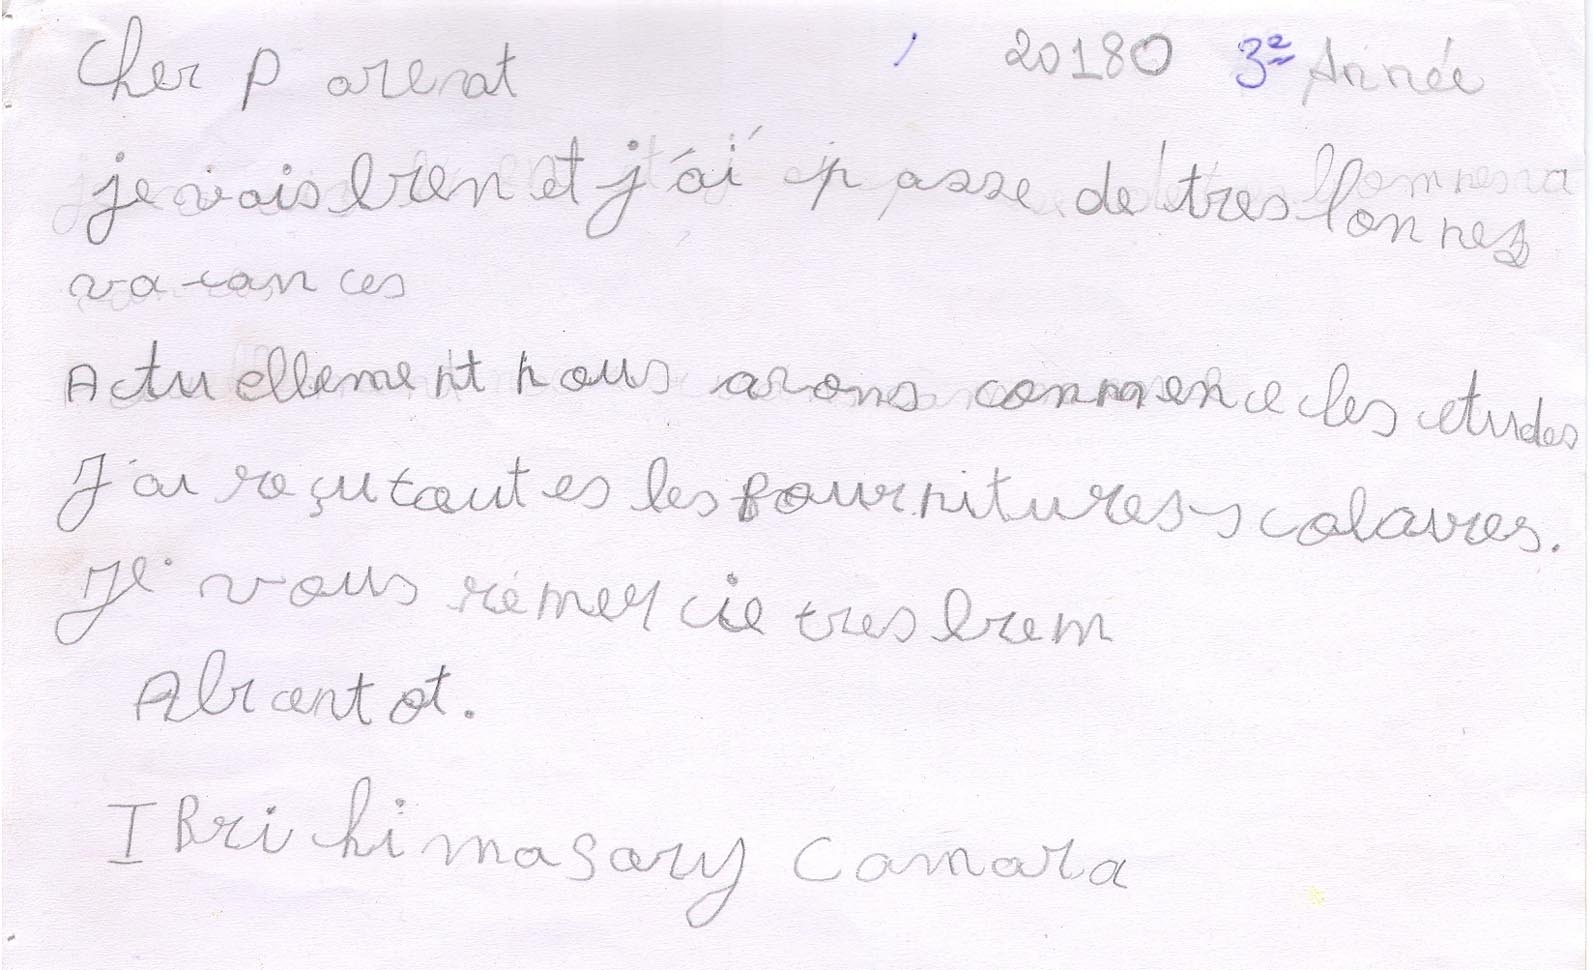 Cher Parent 20180 3e Année
je vais bien et j'ai passe de tres bonnes
vacances
Actuellement nous avons commence les etudes
J'ai reçu toutes les fournitures scolaires.
Je vous remercie tres bien
A bientot.
IBrihima Sary Camara